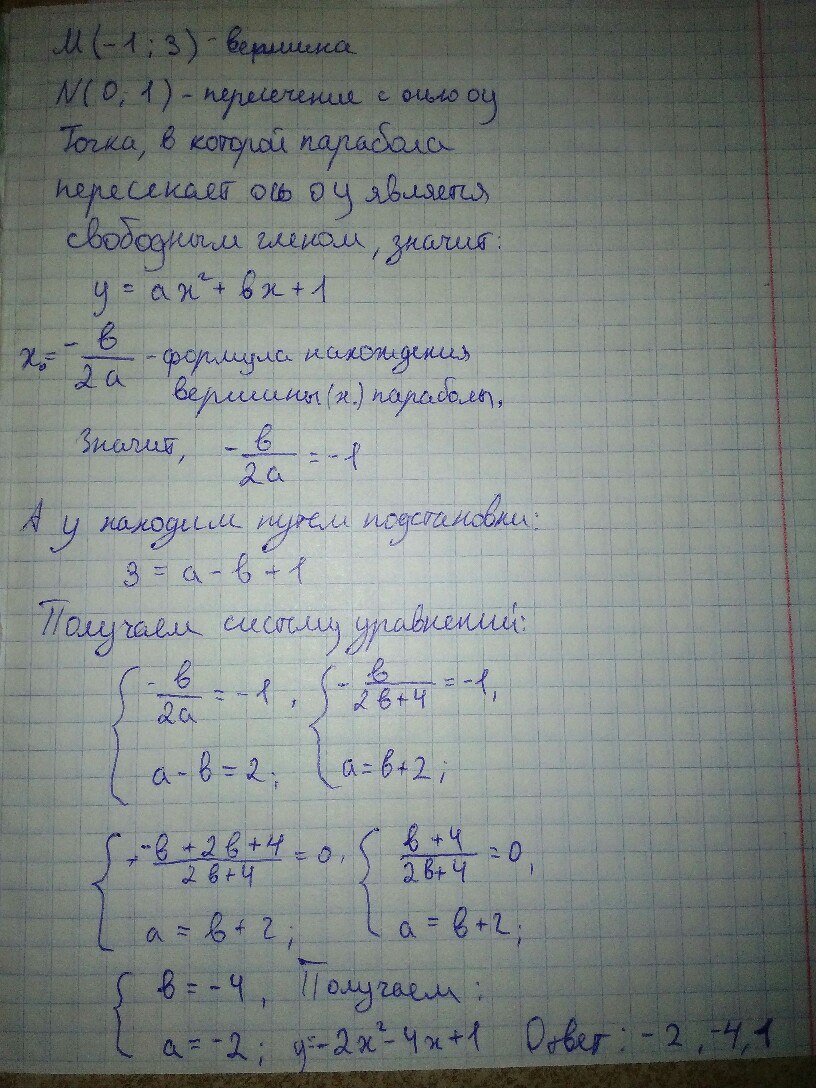 М(-1; 3) - вершина
N(0; 1) - пересечение с осью оу
Точка, в которой парабола
пересекает ось оу является
свободным членом, значит:
y = ax² + bx + 1
x₀ = -b/2a - формула нахождения
вершины (x.) параболы.
Значит, -b/2a = -1
А y находим путем подстановки:
3 = a - b + 1
Получаем систему уравнений:
{ -b/2a = -1, { -b/2b+4 = -1,
a - b = 2; a = b+2;
{ -b + 2b + 4/2b+4 = 0, { b+4/2b+4 = 0,
a = b + 2; a = b+2;
{ b = -4, Получаем:
a = -2; y = -2x² - 4x + 1 Ответ: -2, -4, 1